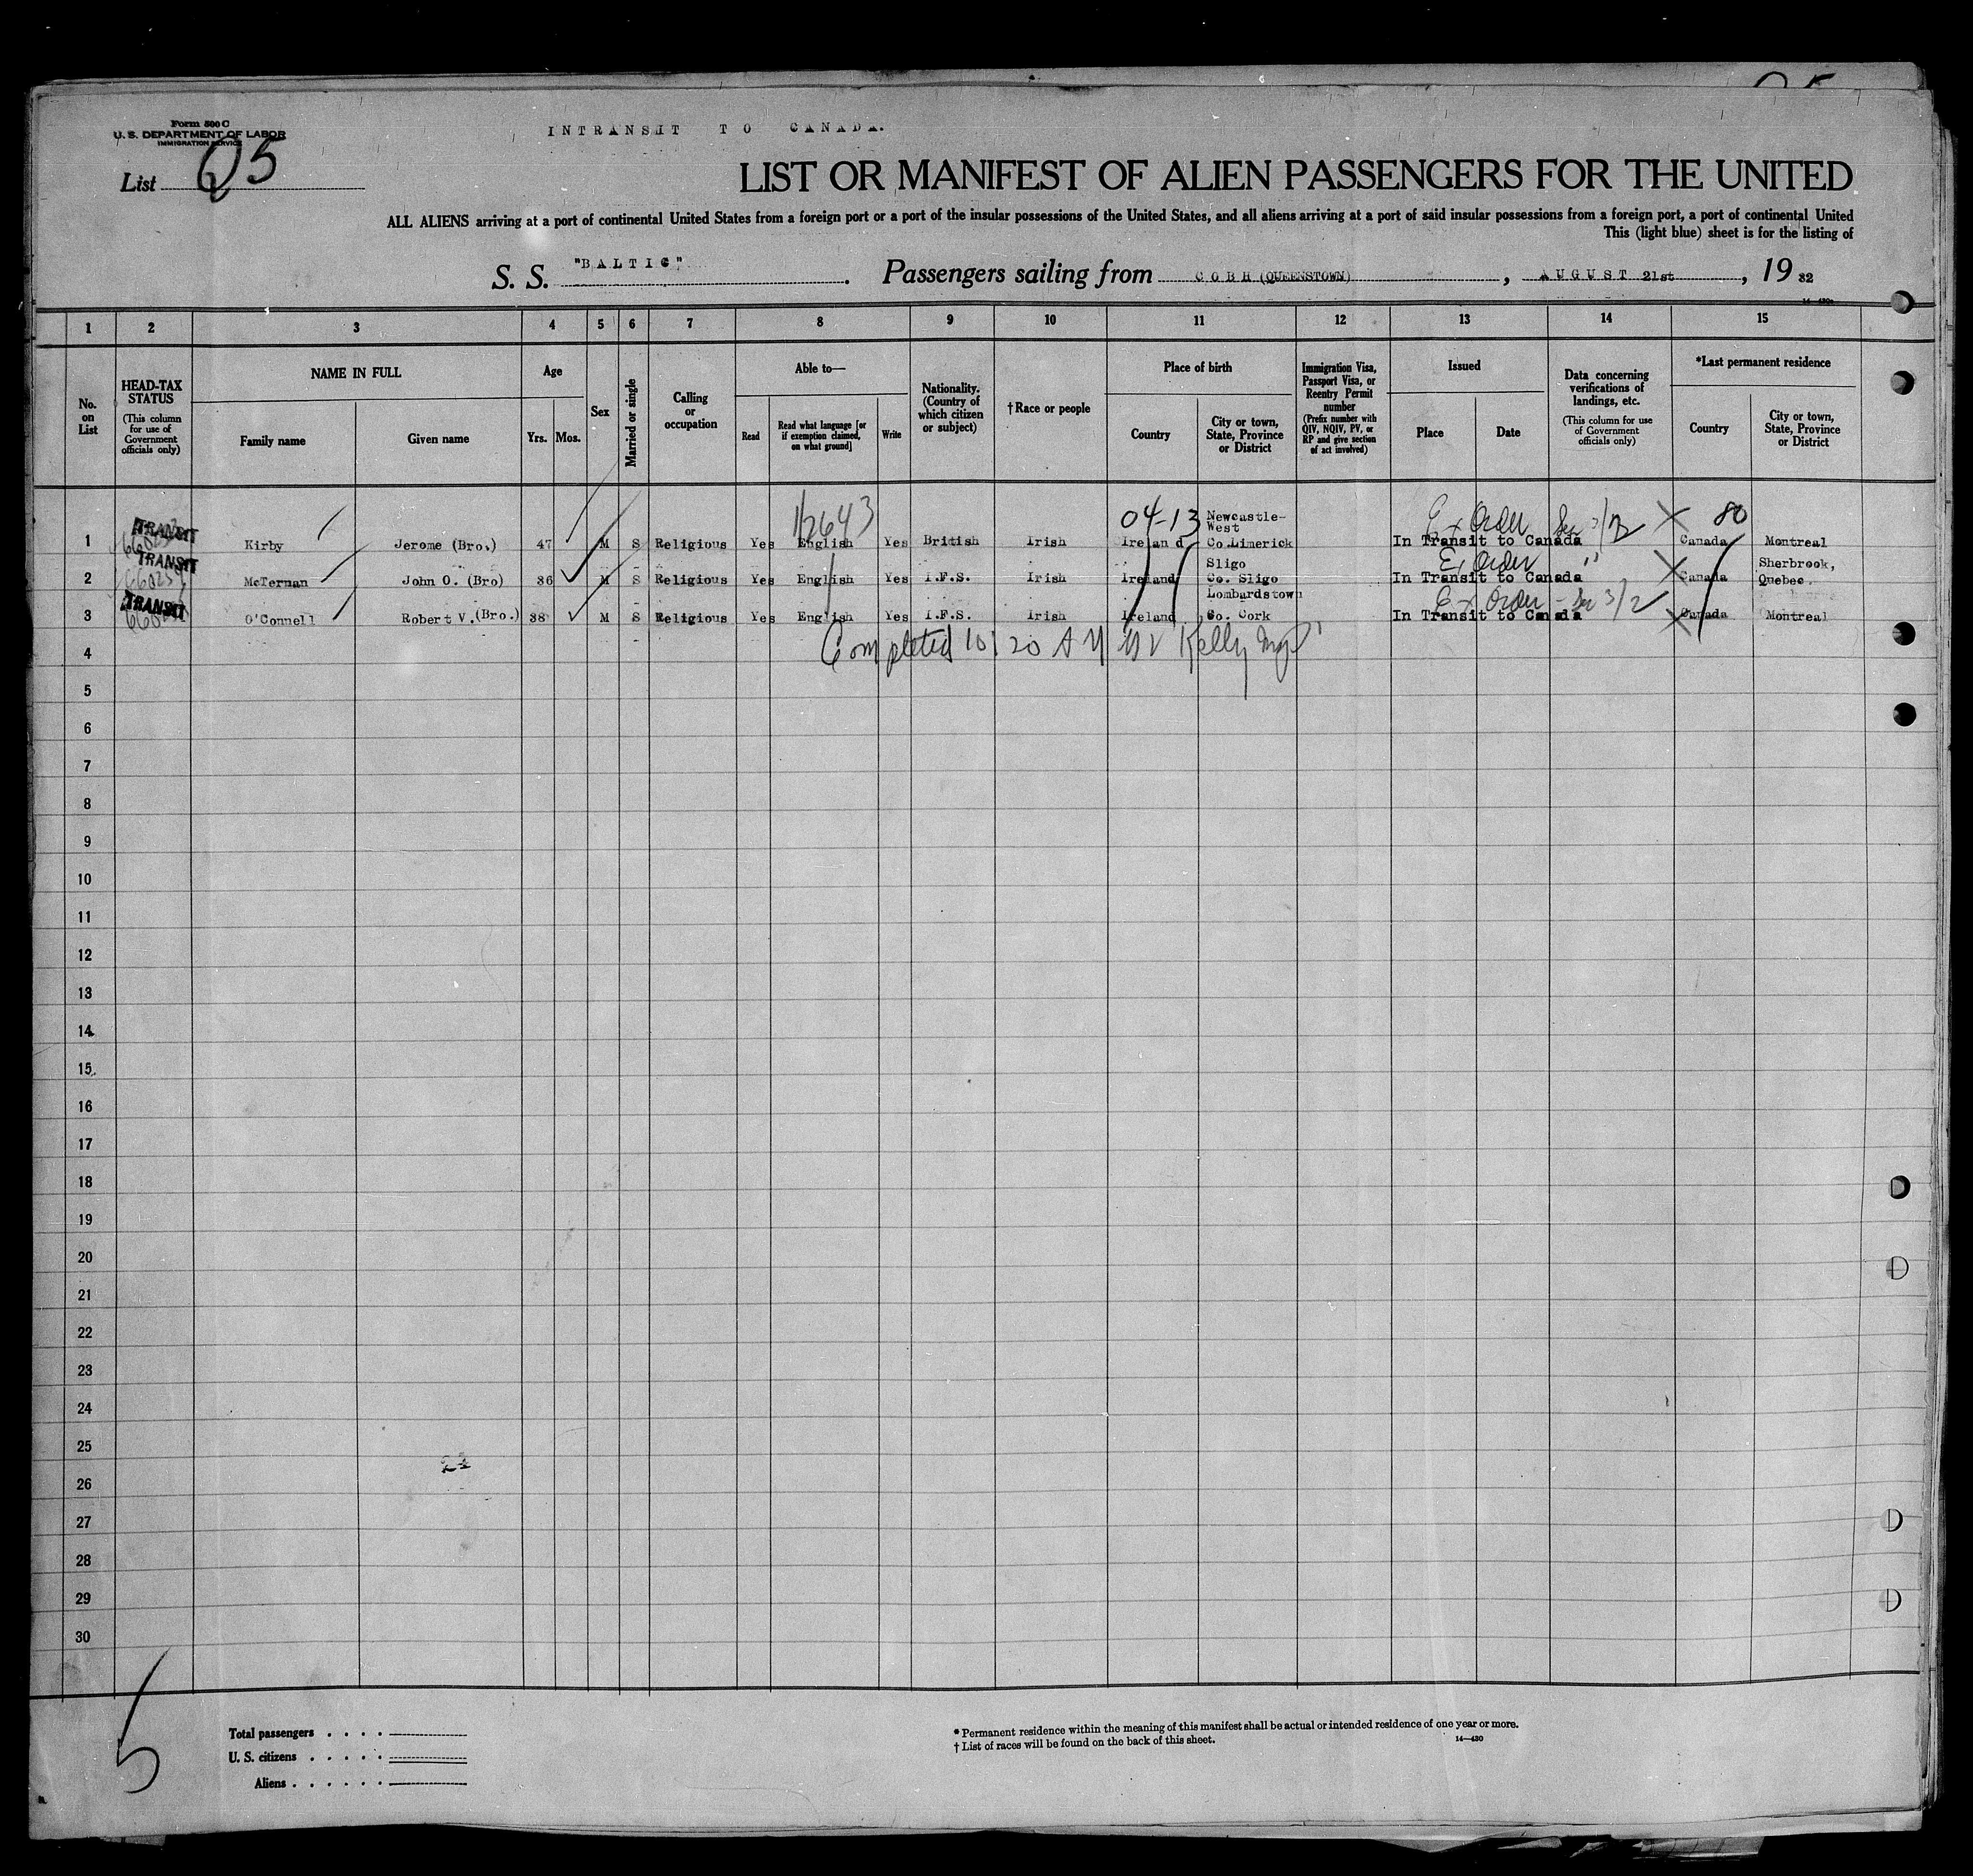 Form 500 C
U. S. DEPARTMENT OF LABOR
IMMIGRATION SERVICE
INTRANSIT TO CANADA.
List 5
LIST OR MANIFEST OF ALIEN PASSENGERS FOR THE UNITED
ALL ALIENS arriving at a port of continental United States from a foreign port or a port of the insular possessions of the United States, and all aliens arriving at a port of said insular possessions from a foreign port, a port of continental United
This (light blue) sheet is for the listing of
S. S. "BALTIC". Passengers sailing from COBH (QUEENSTOWN), AUGUST 21st, 1932
1 2 3 4 5 6 7 8 9 10 11 12 13 14 15
No. on List
HEAD-TAX STATUS
(This column for use of Government officials only)
NAME IN FULL
Family name
Given name
Age
Yrs. Mos.
Sex
Married or single
Calling or occupation
Able to—
Read
Read what language [or if exemption claimed, on what ground]
Write
Nationality. (Country of which citizen or subject)
†Race or people
Place of birth
Country
City or town, State, Province or District
Immigration Visa, Passport Visa, or Reentry Permit number
(Prefix number with QIV, NQIV, PV, or RP and give section of act involved)
Issued
Place
Date
Data concerning verifications of landings, etc.
(This column for use of Government officials only)
*Last permanent residence
Country
City or town, State, Province or District
12643 04-13 Newcastle-West Ex Order 3/2 80
1 TRANSIT Kirby Jerome (Bro.) 47 M S Religious Yes English Yes British Irish Ireland Co.Limerick In Transit to Canada Canada Montreal
Sligo Ex Order " Sherbrook,
2 TRANSIT McTernan John O. (Bro) 36 M S Religious Yes English Yes I.F.S. Irish Ireland Co. Sligo In Transit to Canada Canada Quebec.
Lombardstown Ex Order - Sec 3/2
3 TRANSIT O'Connell Robert V.(Bro.) 38 M S Religious Yes English Yes I.F.S. Irish Ireland Co. Cork In Transit to Canada Canada Montreal
Completed 10:20 AM Kelly
4
5
6
7
8
9
10
11
12
13
14
15
16
17
18
19
20
21
22
23
24
25
26
27
28
29
30
24
5
Total passengers
U. S. citizens
Aliens
* Permanent residence within the meaning of this manifest shall be actual or intended residence of one year or more.
† List of races will be found on the back of this sheet.
14—430